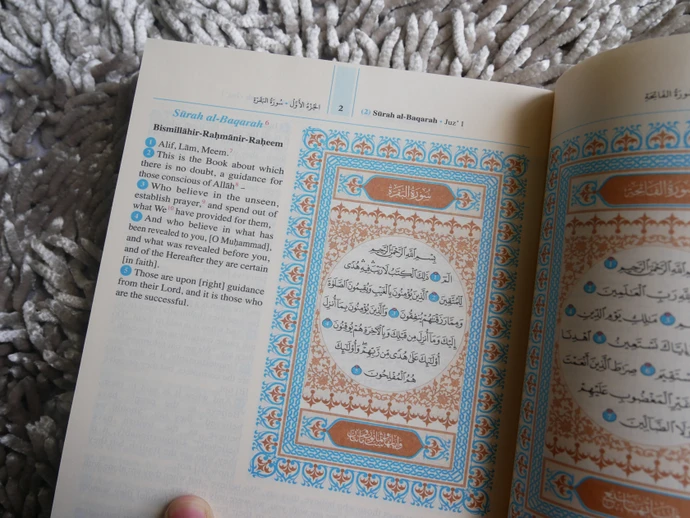 الجزء الأول - سورة البقرة
2
(2) Sūrah al-Baqarah · Juz' 1
Sūrah al-Baqarah⁶
Bismillāhir-Raḥmānir-Raḥeem
1 Alif, Lām, Meem.⁷
2 This is the Book about which
there is no doubt, a guidance for
those conscious of Allāh⁸ –
3 Who believe in the unseen,
establish prayer,⁹ and spend out of
what We¹⁰ have provided for them,
4 And who believe in what has
been revealed to you, [O Muḥammad],
and what was revealed before you,
and of the Hereafter they are certain
[in faith].
5 Those are upon [right] guidance
from their Lord, and it is those who
are the successful.
سورة البقرة
بِسْمِ اللَّهِ الرَّحْمَٰنِ الرَّحِيمِ
الٓمٓ ۝١ ذَٰلِكَ الْكِتَٰبُ لَا رَيْبَ ۛ فِيهِ ۛ هُدًى
لِّلْمُتَّقِينَ ۝٢ الَّذِينَ يُؤْمِنُونَ بِالْغَيْبِ وَيُقِيمُونَ الصَّلَوٰةَ
وَمِمَّا رَزَقْنَٰهُمْ يُنفِقُونَ ۝٣ وَالَّذِينَ يُؤْمِنُونَ بِمَآ أُنزِلَ
إِلَيْكَ وَمَآ أُنزِلَ مِن قَبْلِكَ وَبِالْءَاخِرَةِ هُمْ يُوقِنُونَ ۝٤
أُو۟لَٰٓئِكَ عَلَىٰ هُدًى مِّن رَّبِّهِمْ ۖ وَأُو۟لَٰٓئِكَ
هُمُ الْمُفْلِحُونَ ۝٥
سورة الفاتحة
بِسْمِ اللَّهِ الرَّحْمَٰنِ الرَّحِيمِ ۝١
رَبِّ الْعَٰلَمِينَ ۝٢
مَٰلِكِ يَوْمِ الدِّينِ
نَسْتَعِينُ ۝٥ اهْدِنَا
صِرَٰطَ الَّذِينَ أَنْعَمْتَ
غَيْرِ الْمَغْضُوبِ عَلَيْهِمْ
وَلَا الضَّآلِّينَ ۝٧